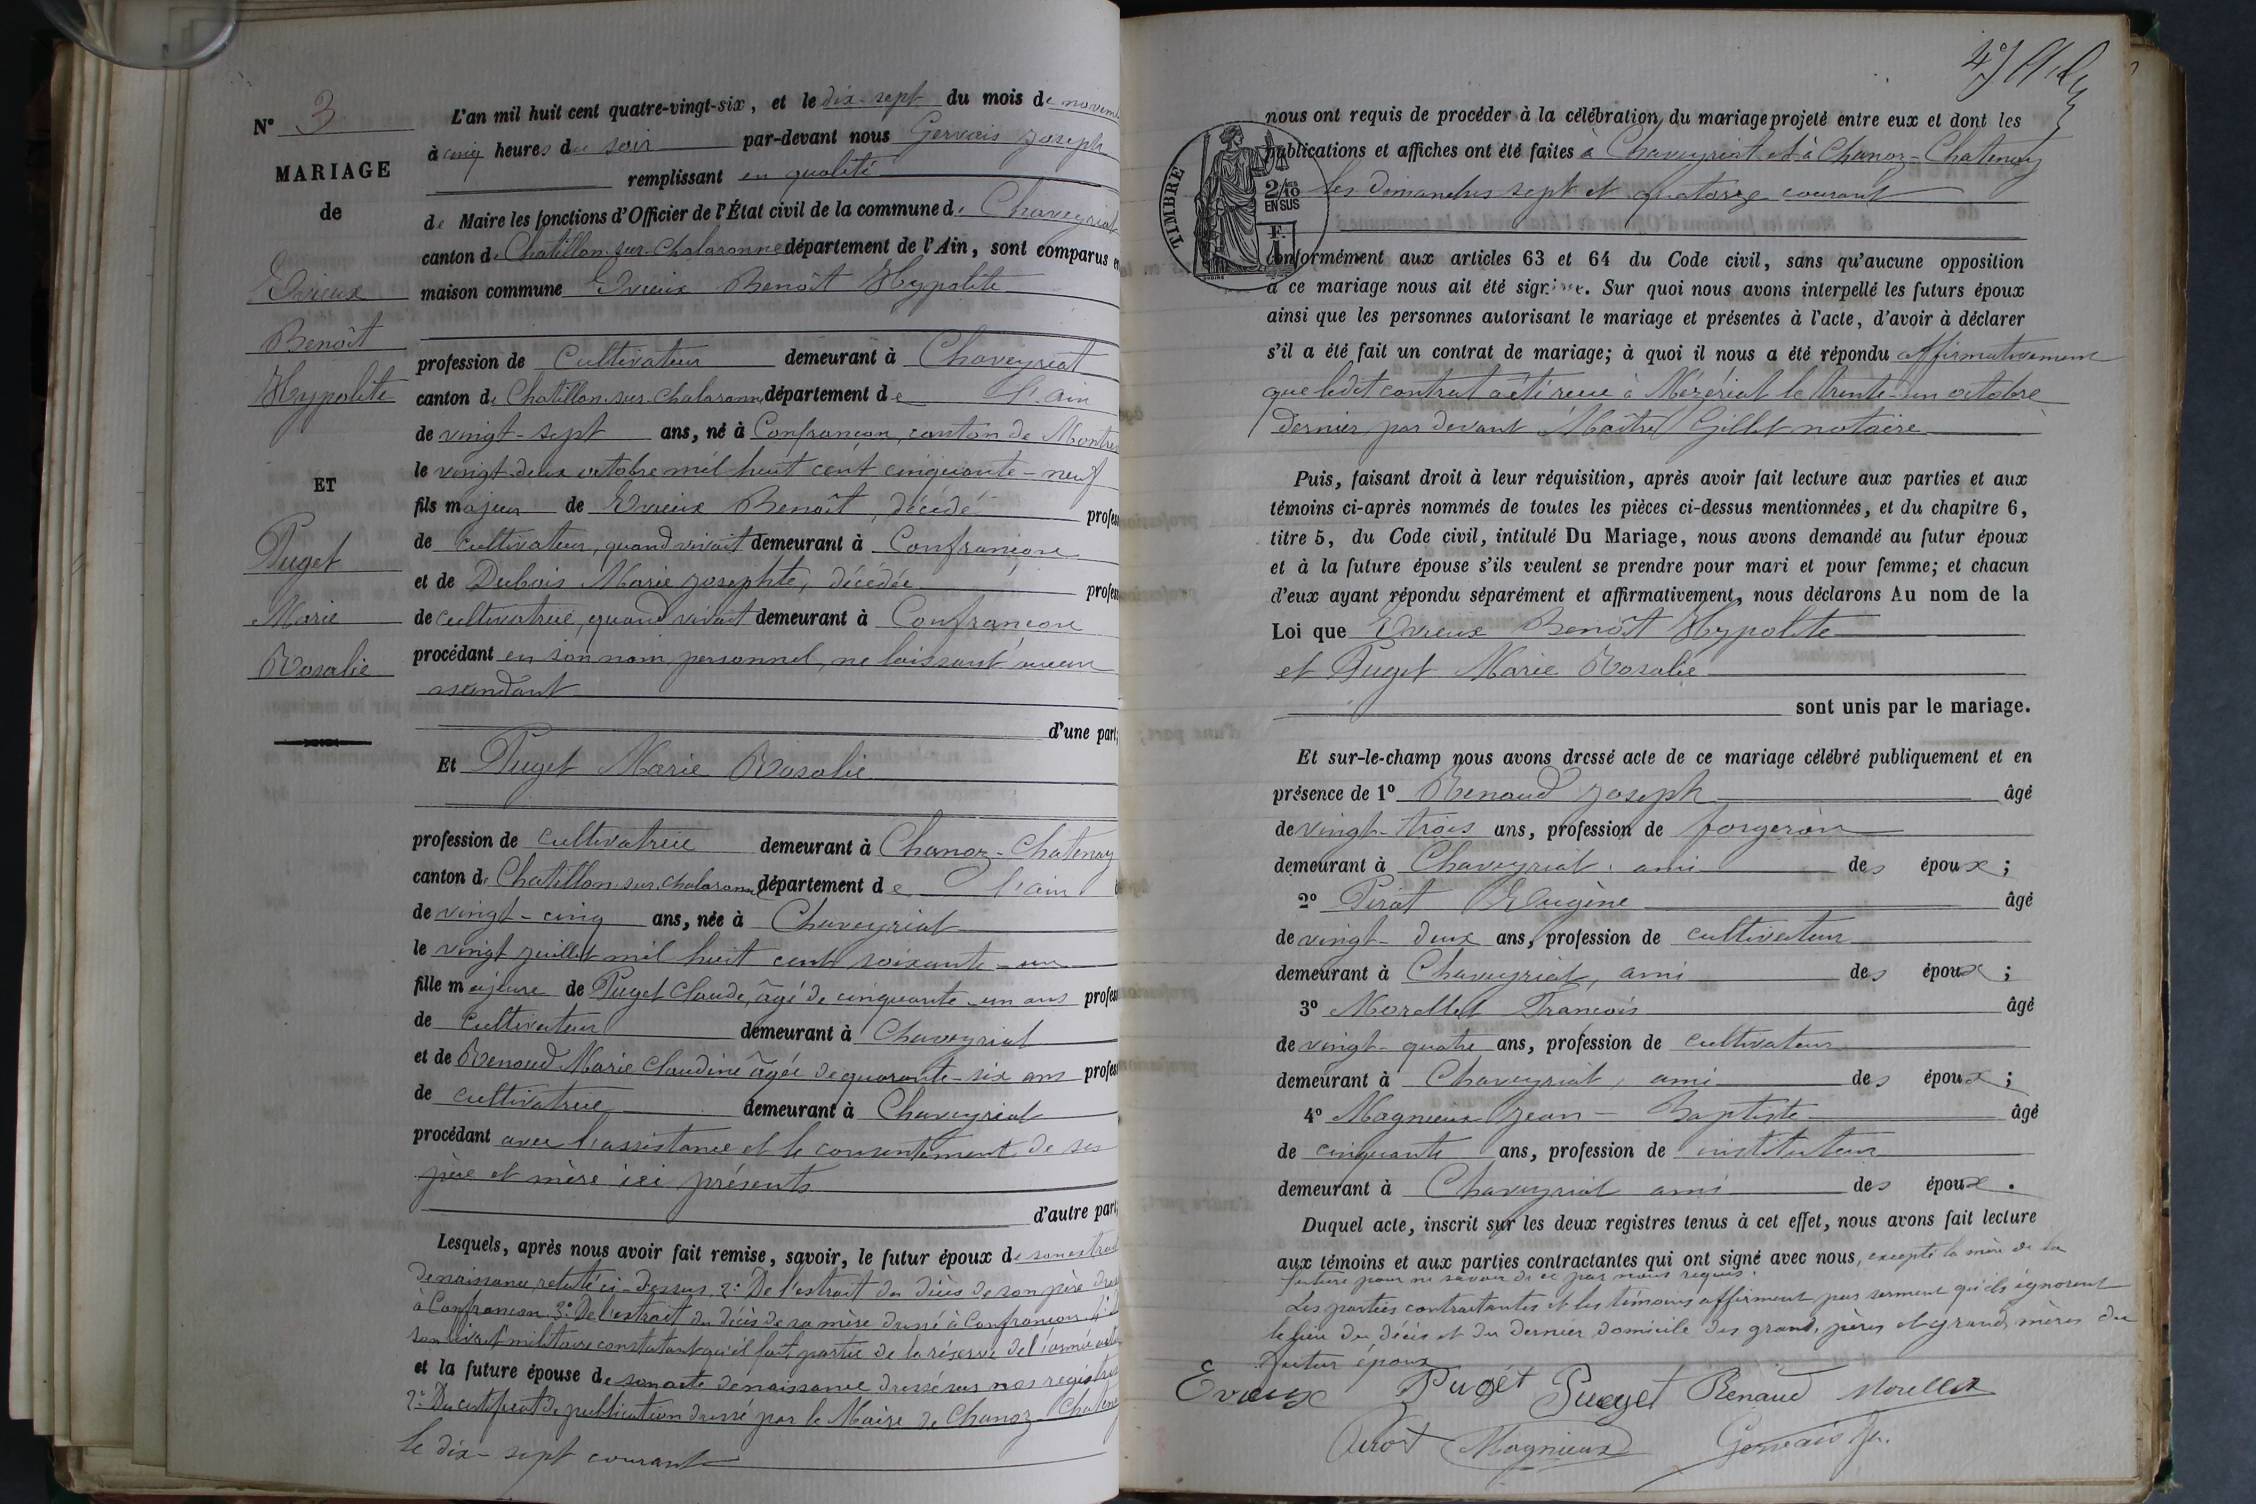 N° 3
MARIAGE
de
Evieux
Benoît
Hypolite
ET
Puget
Marie
Rosalie
L'an mil huit cent quatre-vingt-six, et le dix-sept du mois de novem
à cinq heures du soir par-devant nous Gervais Joseph
remplissant en qualité
de Maire les fonctions d'Officier de l'État civil de la commune de Chaveyriat
canton de Chatillon-sur-Chalaronne département de l'Ain, sont comparus en
maison commune Evieux Benoît Hypolite
profession de cultivateur demeurant à Chaveyriat
canton de Chatillon-sur-Chalaronne département de l'ain
de vingt-sept ans, né à Confrançon, canton de Montre
le vingt-deux octobre mil huit cent cinquante-neuf
fils majeur de Evieux Benoît, décédé profes
de cultivateur, quand vivait demeurant à Confrançon
et de Dubois Marie Josephte, décédée profes
de cultivatrice, quand vivait demeurant à Confrançon
procédant en son nom personnel, ne laissant aucun
ascendant
d'une part;
Et Puget Marie Rosalie
profession de cultivatrice demeurant à Chanoz-Chatenay
canton de Chatillon-sur-Chalaronne département de l'ain
de vingt-cinq ans, née à Chaveyriat
le vingt juillet mil huit cent soixante-un
fille majeure de Puget Claude, âgé de cinquante-un ans profes
de cultivateur demeurant à Chaveyriat
et de Renaud Marie Claudine âgée de quarante-six ans profes
de cultivatrice demeurant à Chaveyriat
procédant avec l'assistance et le consentement de ses
père et mère ici présents
d'autre part;
Lesquels, après nous avoir fait remise, savoir, le futur époux de son extrait
de naissance, relaté ci-dessus, 2° De l'extrait du décès de son père dressé
à Confrançon, 3° De l'extrait du décès de sa mère dressé à Confrançon, 4° de
son livret militaire constatant qu'il fait partie de la réserve de l'armée active
et la future épouse de son acte de naissance dressé sur nos registres
2° Du certificat de publication dressé par le Maire de Chanoz-Chatenay
le dix-sept courant
TIMBRE
2/10 EN SUS
nous ont requis de procéder à la célébration du mariage projeté entre eux et dont les
publications et affiches ont été faites à Chaveyriat et à Chanoz-Chatenay
les dimanches sept et quatorze courant
conformément aux articles 63 et 64 du Code civil, sans qu'aucune opposition
à ce mariage nous ait été signifiée. Sur quoi nous avons interpellé les futurs époux
ainsi que les personnes autorisant le mariage et présentes à l'acte, d'avoir à déclarer
s'il a été fait un contrat de mariage; à quoi il nous a été répondu affirmativement
que ledit contrat a été reçu à Mézériat le trente-un octobre
dernier par devant Maître Gillet notaire
Puis, faisant droit à leur réquisition, après avoir fait lecture aux parties et aux
témoins ci-après nommés de toutes les pièces ci-dessus mentionnées, et du chapitre 6,
titre 5, du Code civil, intitulé Du Mariage, nous avons demandé au futur époux
et à la future épouse s'ils veulent se prendre pour mari et pour femme; et chacun
d'eux ayant répondu séparément et affirmativement, nous déclarons Au nom de la
Loi que Evieux Benoît Hypolite
et Puget Marie Rosalie
sont unis par le mariage.
Et sur-le-champ nous avons dressé acte de ce mariage célébré publiquement et en
présence de 1° Renaud Joseph âgé
de vingt-trois ans, profession de forgeron
demeurant à Chaveyriat, ami des époux;
2° Perat Eugène âgé
de vingt-deux ans, profession de cultivateur
demeurant à Chaveyriat, ami des époux;
3° Morellet François âgé
de vingt-quatre ans, profession de cultivateur
demeurant à Chaveyriat, ami des époux;
4° Magnieux Jean-Baptiste âgé
de cinquante ans, profession de instituteur
demeurant à Chaveyriat ami des époux.
Duquel acte, inscrit sur les deux registres tenus à cet effet, nous avons fait lecture
aux témoins et aux parties contractantes qui ont signé avec nous, excepté la mère de la
future pour ne savoir de ce par nous requis.
Les parties contractantes et les témoins affirment par serment qu'ils ignorent
le lieu du décès et du dernier domicile des grands pères et grands mères du
futur époux
Evieux Puget Puget Renaud Morellet
Perat Magnieux Gervais Jh.